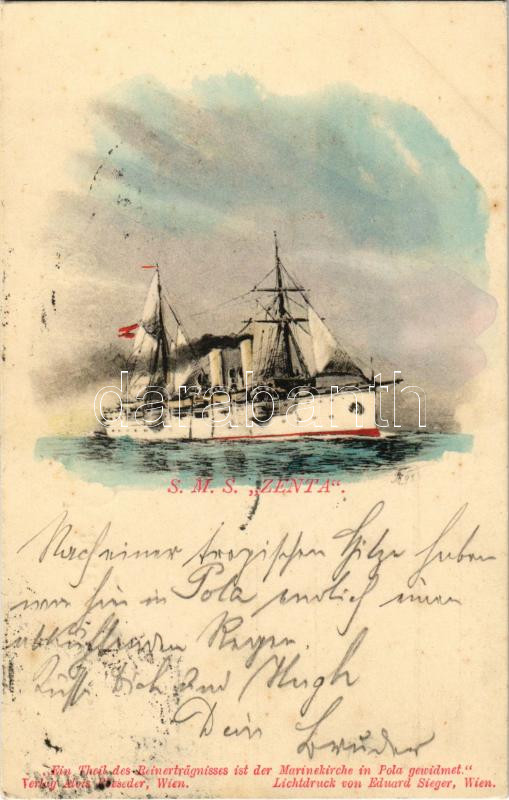 darabanth
S. M. S. „ZENTA“.
Nach einer tropischen Hitze haben
wir hir in Pola endlich einen
abkühlenden Regen.
Küsse Dich und Hugh
Dein
Bruder
„Ein Theil des Reinerträgnisses ist der Marinekirche in Pola gewidmet.“
Verlag Alois, Wien. Lichtdruck von Eduard Sieger, Wien.